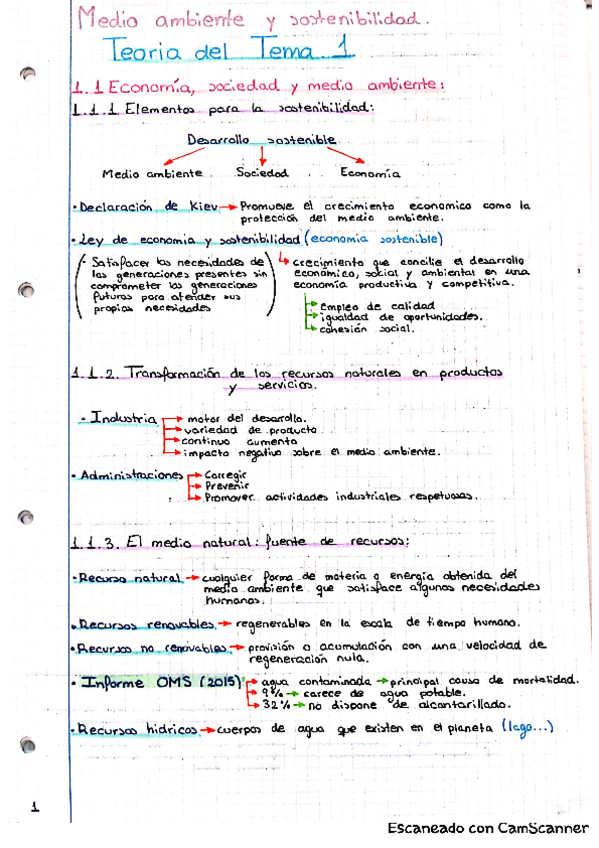 Medio ambiente y sostenibilidad.
Teoria del Tema 1
1.1 Economía, sociedad y medio ambiente:
1.1.1 Elementos para la sostenibilidad:
Desarrollo sostenible.
Medio ambiente. Sociedad. Economía
• Declaración de Kiev → Promueve el crecimiento economico como la
protección del medio ambiente.
• Ley de economia y sostenibilidad (economia sostenible)
(- Satisfacer las necesidades de
las generaciones presentes sin
comprometer las generaciones
futuras para atender sus
propias necesidades)
↳ crecimiento que concilie el desarrollo
económico, social y ambiental en una
economía productiva y competitiva.
↳ empleo de calidad
↳ igualdad de oportunidades.
↳ cohesión social.
1.1.2. Transformación de los recursos naturales en productos
y servicios.
- Industria → motor del desarrollo.
→ variedad de producto
→ continuo aumento
→ impacto negativo sobre el medio ambiente.
• Administraciones → Corregir
→ Prevenir
→ Promover actividades industriales respetuosas.
1.1.3. El medio natural: fuente de recursos:
• Recurso natural → cualquier forma de materia o energía obtenida del
medio ambiente que satisface algunas necesidades
humanas.
• Recursos renovables → regenerables en la escala de tiempo humano.
• Recursos no renovables → provisión o acumulación con una velocidad de
regeneración nula.
• Informe OMS (2015) → agua contaminada → principal causa de mortalidad.
→ 9% → carece de agua potable.
→ 32% → no dispone de alcantarillado.
• Recursos hidricos → cuerpos de agua que existen en el planeta (lago...)
1
Escaneado con CamScanner